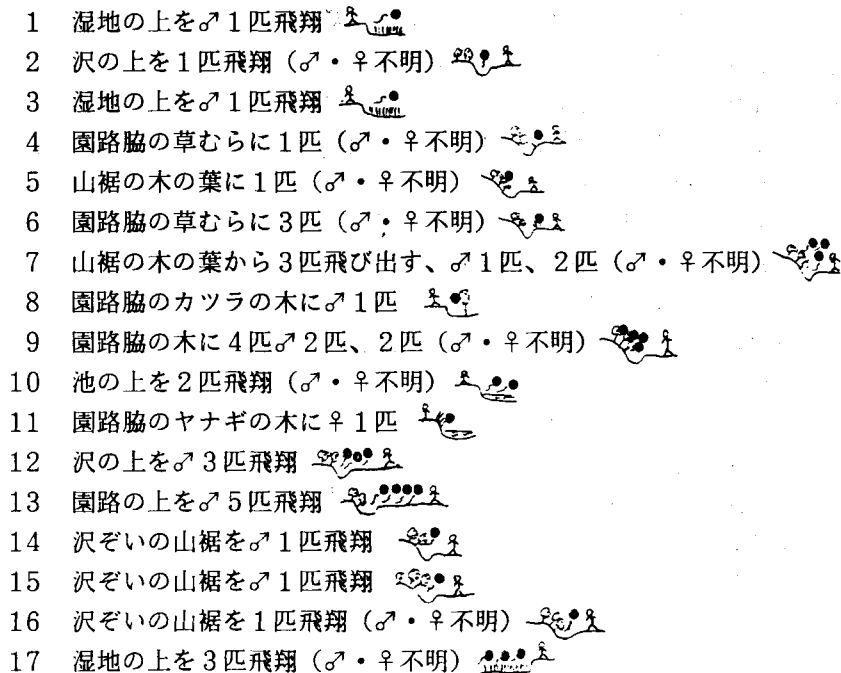 1 湿地の上を♂1匹飛翔
2 沢の上を1匹飛翔（♂・♀不明）
3 湿地の上を♂1匹飛翔
4 園路脇の草むらに1匹（♂・♀不明）
5 山裾の木の葉に1匹（♂・♀不明）
6 園路脇の草むらに3匹（♂・♀不明）
7 山裾の木の葉から3匹飛び出す、♂1匹、2匹（♂・♀不明）
8 園路脇のカツラの木に♂1匹
9 園路脇の木に4匹♂2匹、2匹（♂・♀不明）
10 池の上を2匹飛翔（♂・♀不明）
11 園路脇のヤナギの木に♀1匹
12 沢の上を♂3匹飛翔
13 園路の上を♂5匹飛翔
14 沢ぞいの山裾を♂1匹飛翔
15 沢ぞいの山裾を♂1匹飛翔
16 沢ぞいの山裾を1匹飛翔（♂・♀不明）
17 湿地の上を3匹飛翔（♂・♀不明）